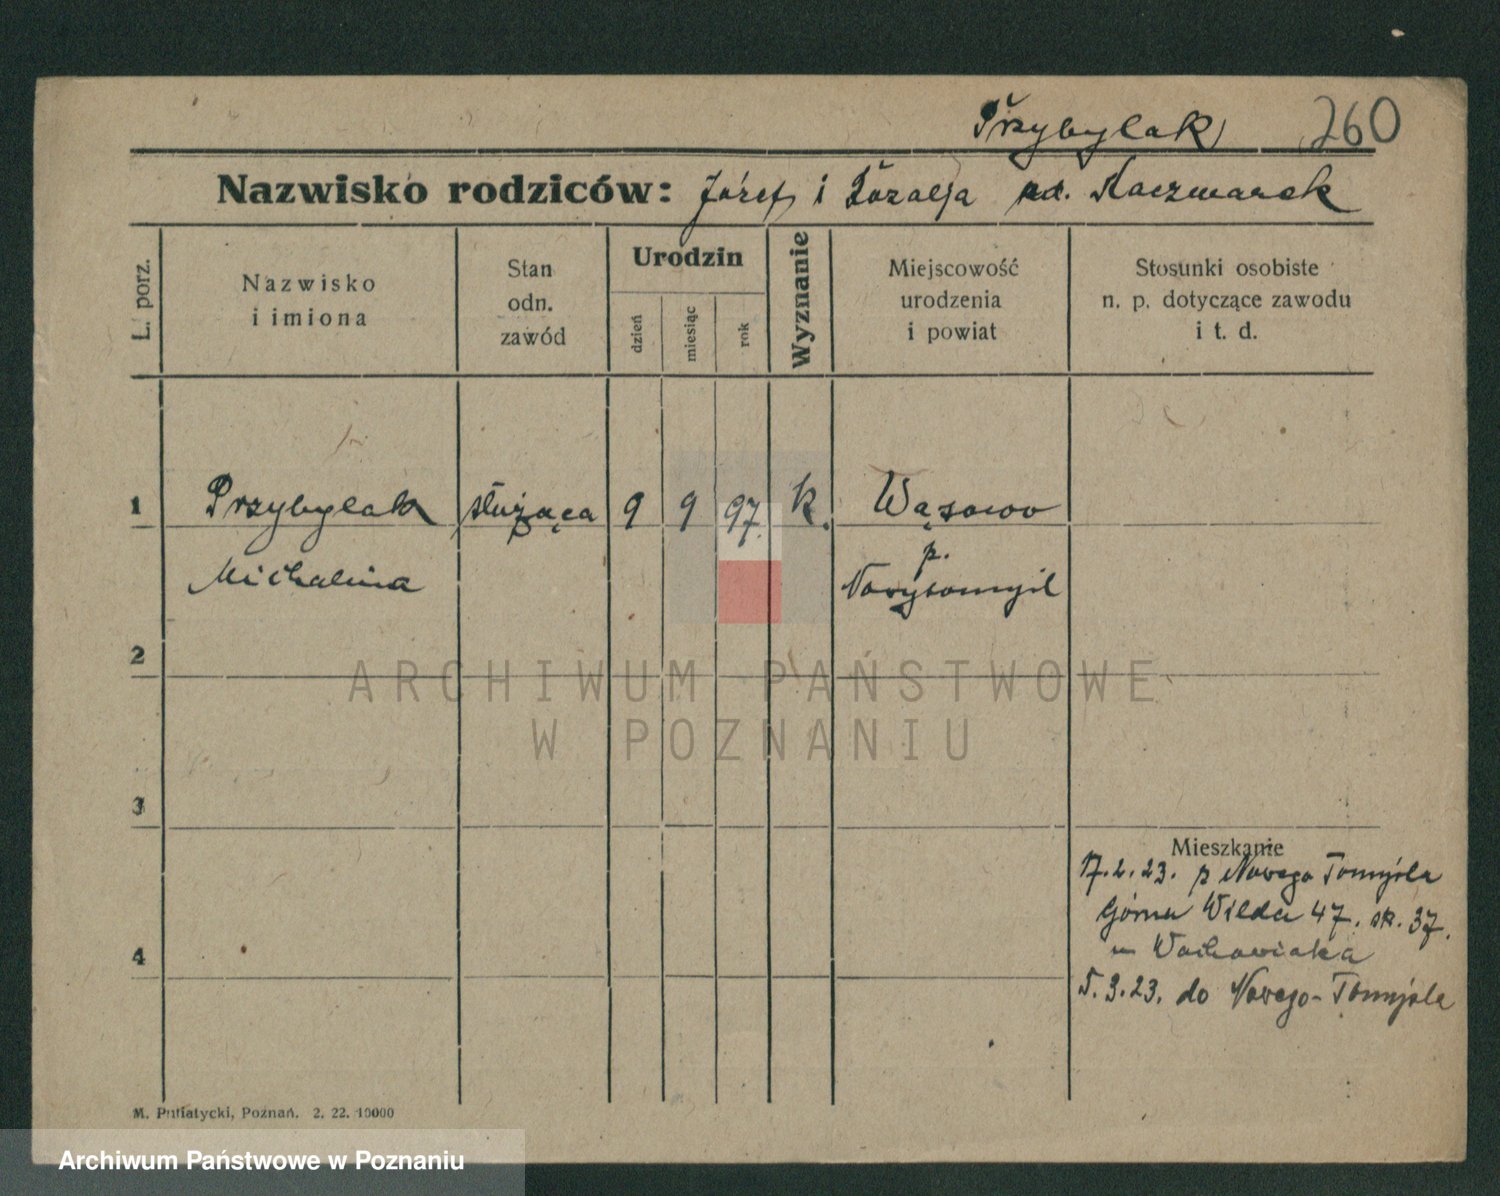 Przybylak 260
Nazwisko rodziców: Józef i Rozalja ud. Kaczmarek
L. porz.
Nazwisko
i imiona
Stan
odn.
zawód
Urodzin
dzień
miesiąc
rok
Wyznanie
Miejscowość
urodzenia
i powiat
Stosunki osobiste
n. p. dotyczące zawodu
i t. d.
1 Przybylak służąca 9 9 97. k. Wąsowo
p.
Michalina Nowytomyśl
2
ARCHIWUM PAŃSTWOWE
W POZNANIU
3
Mieszkanie
17.2.23. p Nowego Tomyśla
Górna Wilda 47. sk. 37.
u Wachowiaka
4
5.3.23. do Nowego-Tomyśla
M. Putiatycki, Poznań. 2. 22. 10000
Archiwum Państwowe w Poznaniu